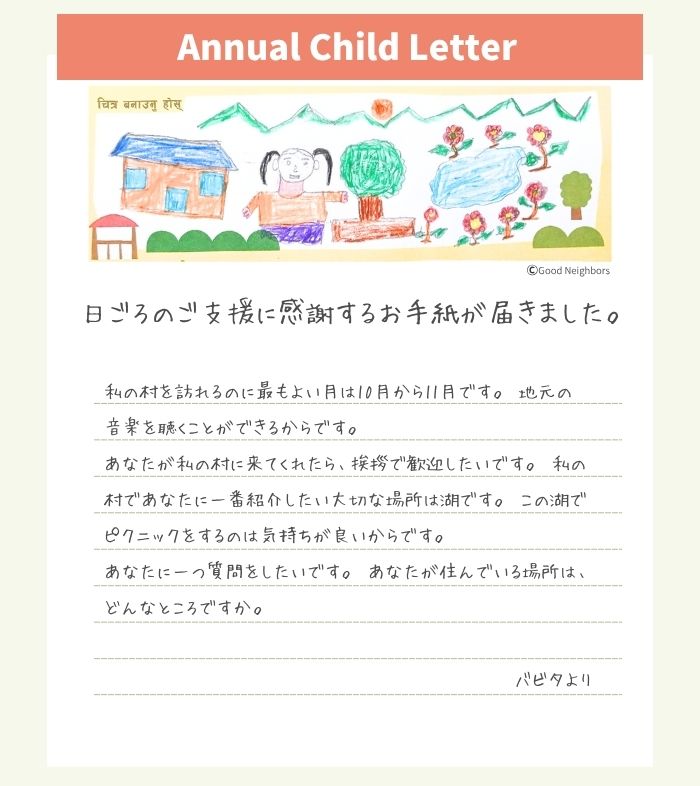 Annual Child Letter
चित्र बनाउनु होस्
©Good Neighbors
日ごろのご支援に感謝するお手紙が届きました。
私の村を訪れるのに最もよい月は10月から11月です。 地元の
音楽を聴くことができるからです。
あなたが私の村に来てくれたら、挨拶で歓迎したいです。 私の
村であなたに一番紹介したい大切な場所は湖です。 この湖で
ピクニックをするのは気持ちが良いからです。
あなたに一つ質問をしたいです。 あなたが住んでいる場所は、
どんなところですか。
バビタより